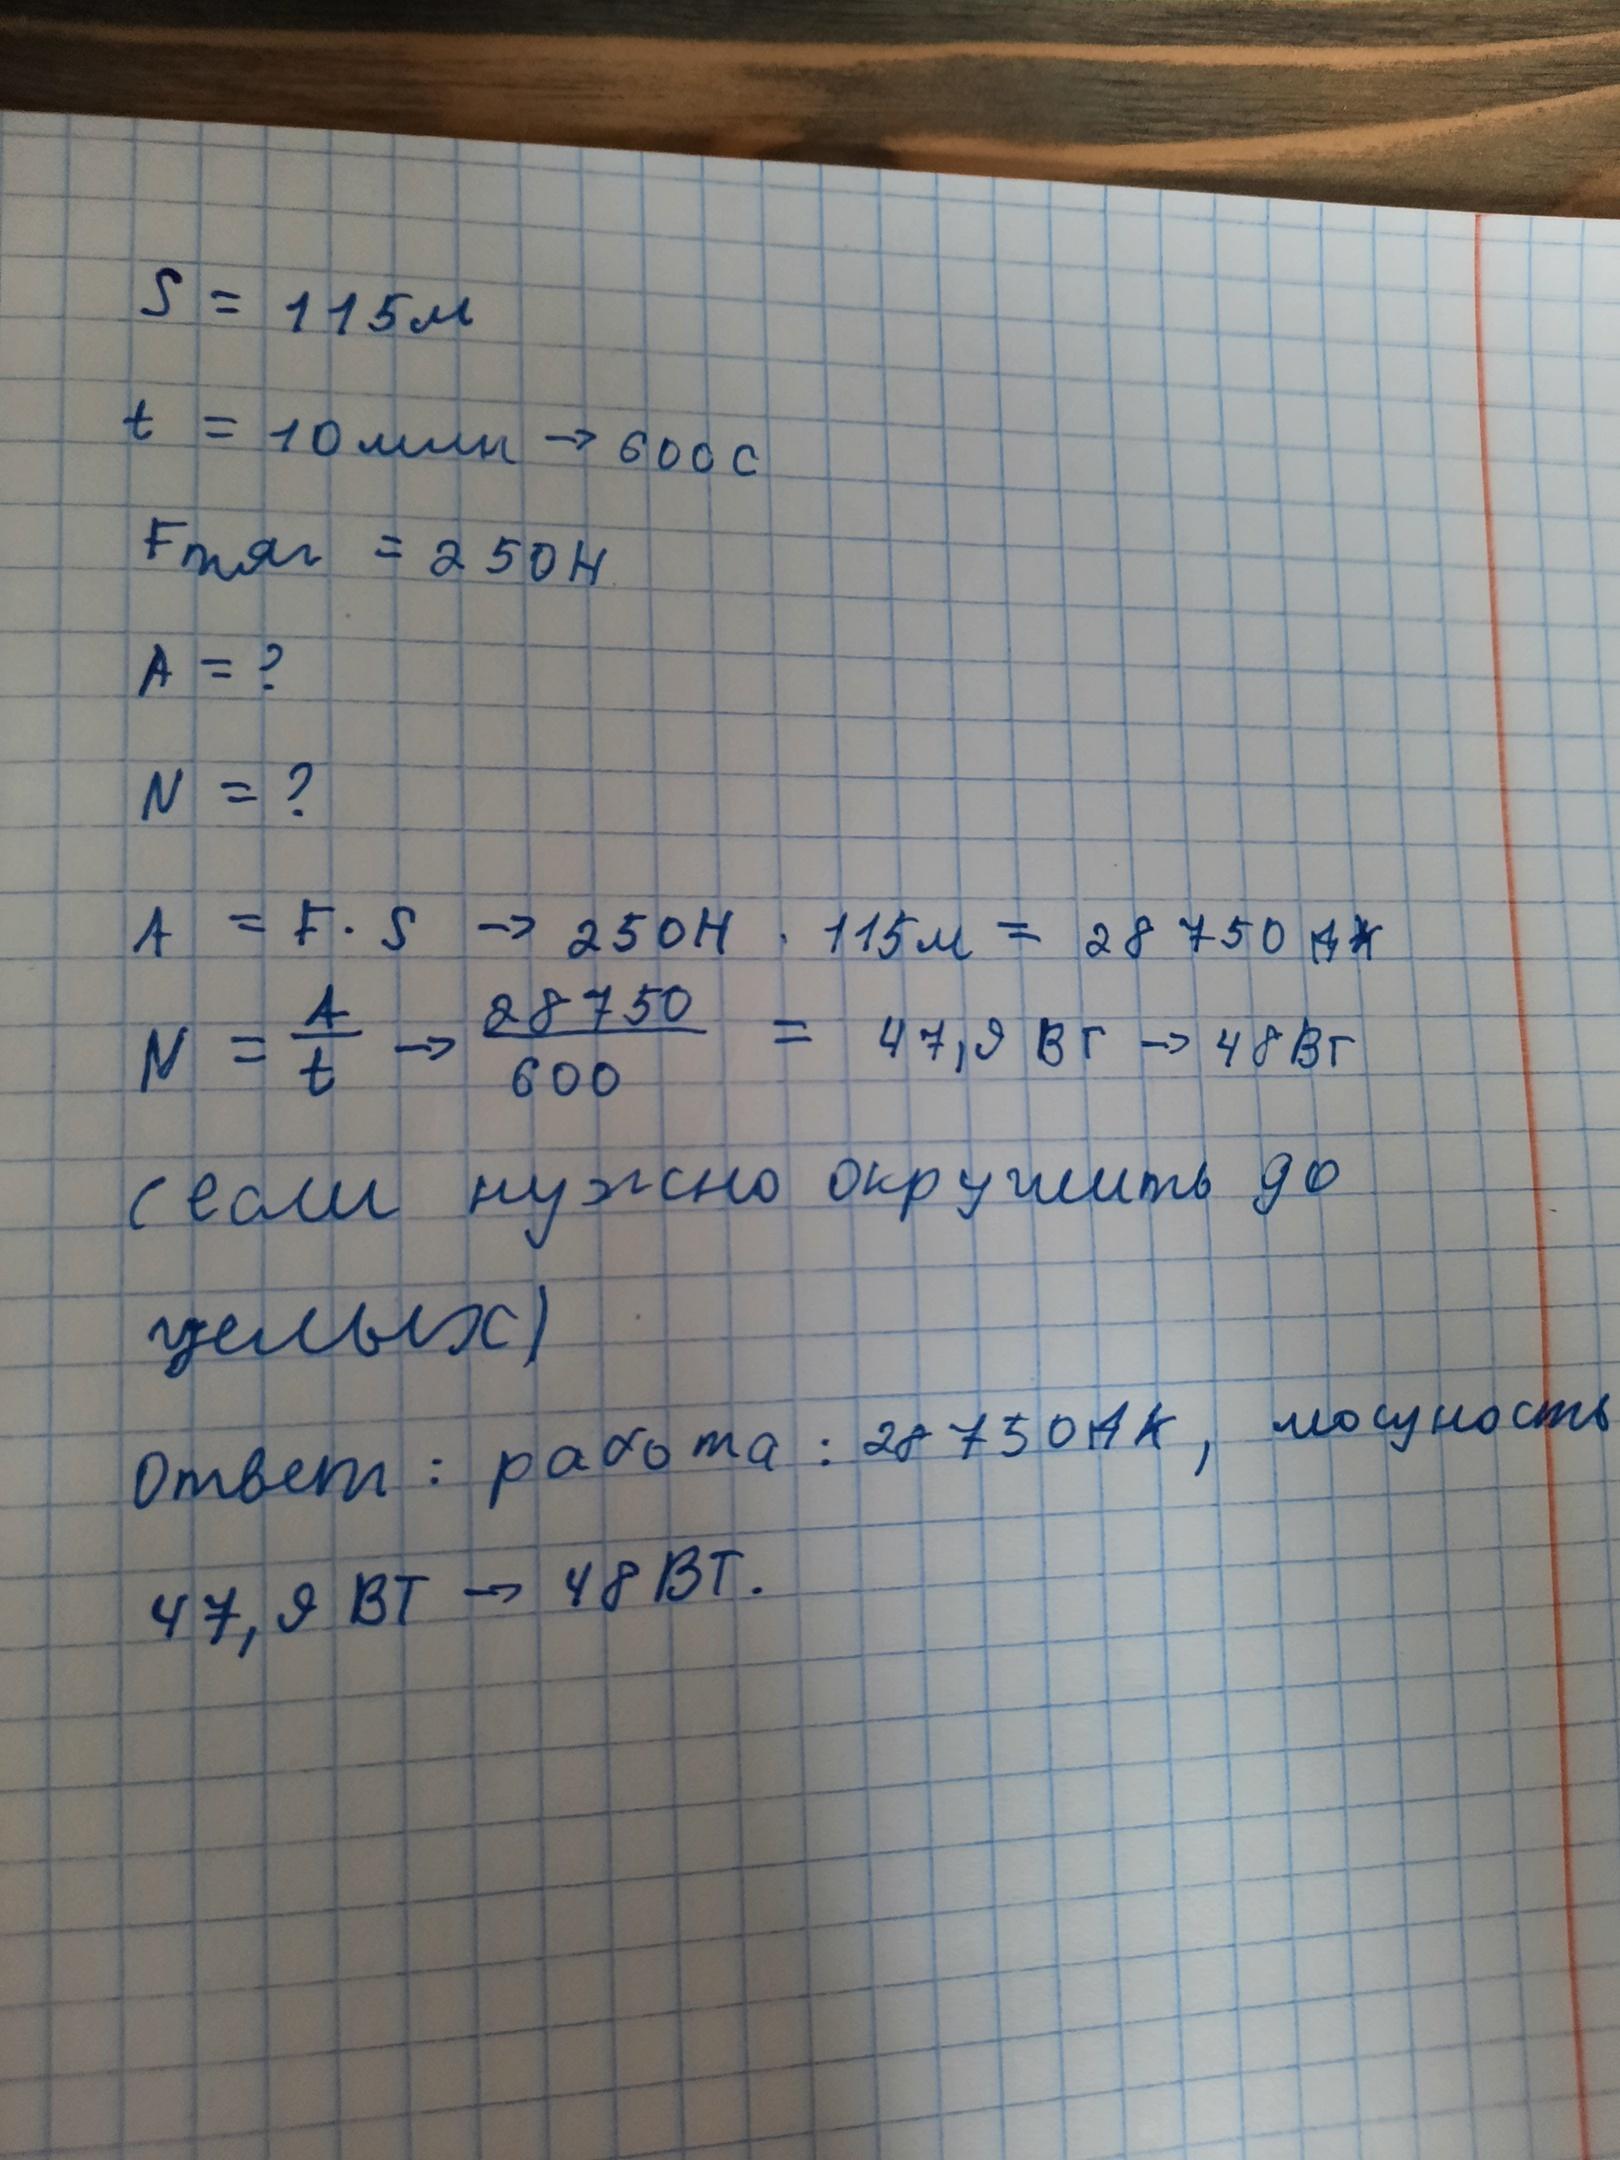 S = 115м
t = 10 мин → 600 с
Fтяг = 250Н
A = ?
N = ?
A = F · S → 250Н · 115м = 28 750 Дж
N = A/t → 28750/600 = 47,9 Вт → 48Вт
(если нужно округлить до
целых)
Ответ: работа: 28750Дж, мощность
47,9 ВТ → 48 ВТ.